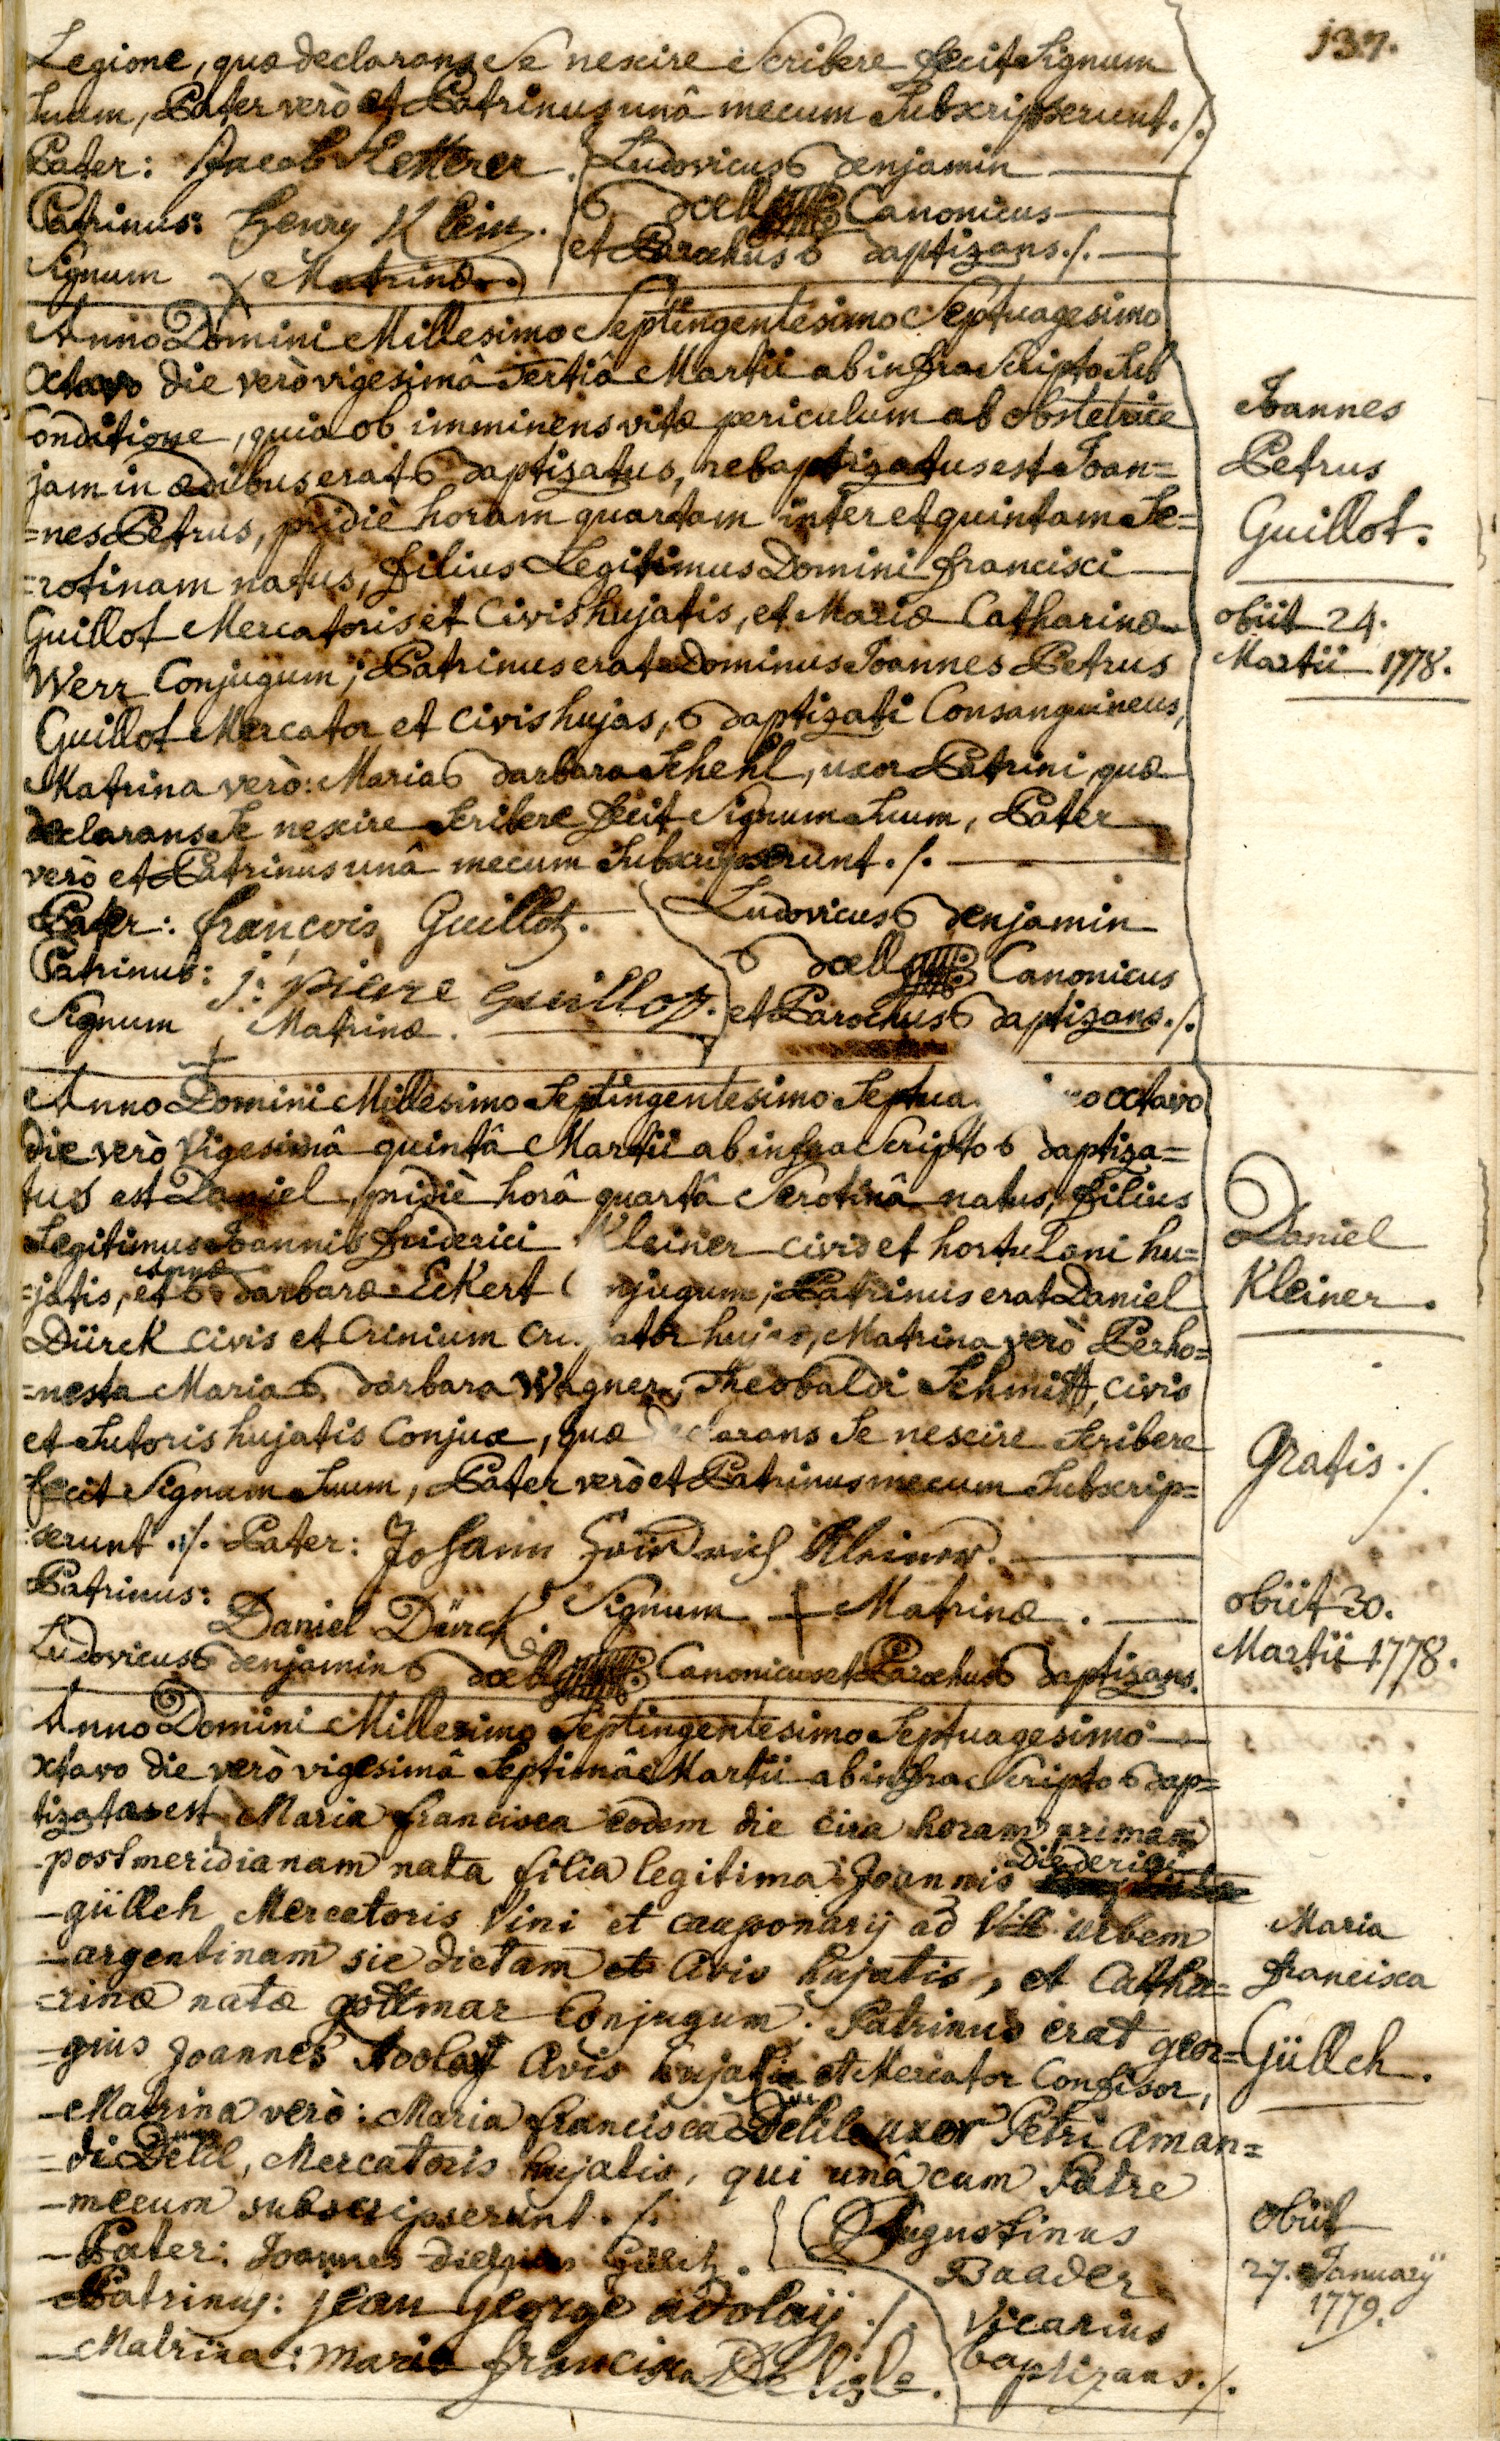 137.
Legione, quæ declarans se nescire scribere fecit Signum
Suum, Pater verò et Patrinus unâ mecum Subscripserunt ./.
Pater: Jacob Ketterer. Ludovicus Benjamin
Patrinus: Henry Klein. Boell Canonicus
Signum X Matrinæ. et Parochus Baptizans ./.
Anno Domini Millesimo Septingentesimo Septuagesimo
Octavo die verò vigesimâ Tertiâ Martii ab infra Scripto Sub
Conditione, quia ob imminens vitæ periculum ab obstetrice
jam in ædibus erat Baptizatus, rebaptizatus est Joan=
=nes Petrus, pridiè horam quartam inter et quintam Se=
=rotinam natus, filius Legitimus Domini francisci
Guillot Mercatoris et Civis hujatis, et Mariæ Catharinæ
Werr Conjugum; Patrinus erat Dominus Joannes Petrus
Guillot Mercator et civis hujas, Baptizati Consanguineus,
Matrina verò: Maria Barbara Schehl, uxor Patrini, quæ
declarans Se nescire Scribere fecit Signum Suum, Pater
verò et Patrinus unâ mecum Subscripserunt ./.
Joannes
Petrus
Guillot.
obiit 24.
Martii 1778.
Pater: françois Guillot. Ludovicus Benjamin
Patrinus: j: pierre Guillot. Boell Canonicus
Signum + Matrinæ. et Parochus Baptizans ./.
Anno Domini Millesimo Septingentesimo Septua mo octavo
die verò Vigesimâ quintâ Martii ab infra Scripto Baptiza=
tus est Daniel, pridiè horâ quartâ Serotinâ natus, filius
Legitimus Joannis friderici Kleiner civis et hortulani hu=
=jatis, et Annæ Barbaræ Eckert C njugum; Patrinus erat Daniel
Dürck civis et Crinium cri pator hujas, Matrina verò Perho=
=nesta Maria Barbara Wagner, Theobaldi Schmitt, civis
et Sutoris hujatis Conjux, quæ declarans Se nescire Scribere
fecit Signum Suum, Pater verò et Patrinus mecum Subscrip=
serunt ./. Pater: Johann Fridrich Kleiner.
Patrinus: Daniel Dürck. Signum + Matrinæ.
Ludovicus Benjamin Boell Canonicus et Parochus Baptizans.
Daniel
Kleiner.
Gratis ./.
obiit 30.
Martii 1778.
Anno Domini Millesimo Septingentesimo Septuagesimo
octavo die verò vigesimâ Septimâ Martii ab infra Scripto Bap=
tizata est Maria francisca eodem die circa horam primam
postmeridianam nata filia legitima Joannis Diederici
güllch Mercatoris Vini et cauponarij ad urbem
argentinam sic dictam et civis hujatis, et Catha=
=rinæ natæ gottmar Conjugum. Patrinus erat geor=
=gius Joannes Adolaij civis hujatis et Mercator Confisor,
Matrina verò: Maria francisca Delile uxor Petri Aman=
=di Delil, Mercatoris hujatis, qui unâ cum Patre
mecum subscripserunt ./.
Pater: Joannes Güllch. Augustinus
Patrinus: jean george adolaij ./. Baader
Matrina: maria francisca Delisle. Vicarius
baptizans ./.
Maria
francisca
Güllch.
obiit
27. Januarij
1779.